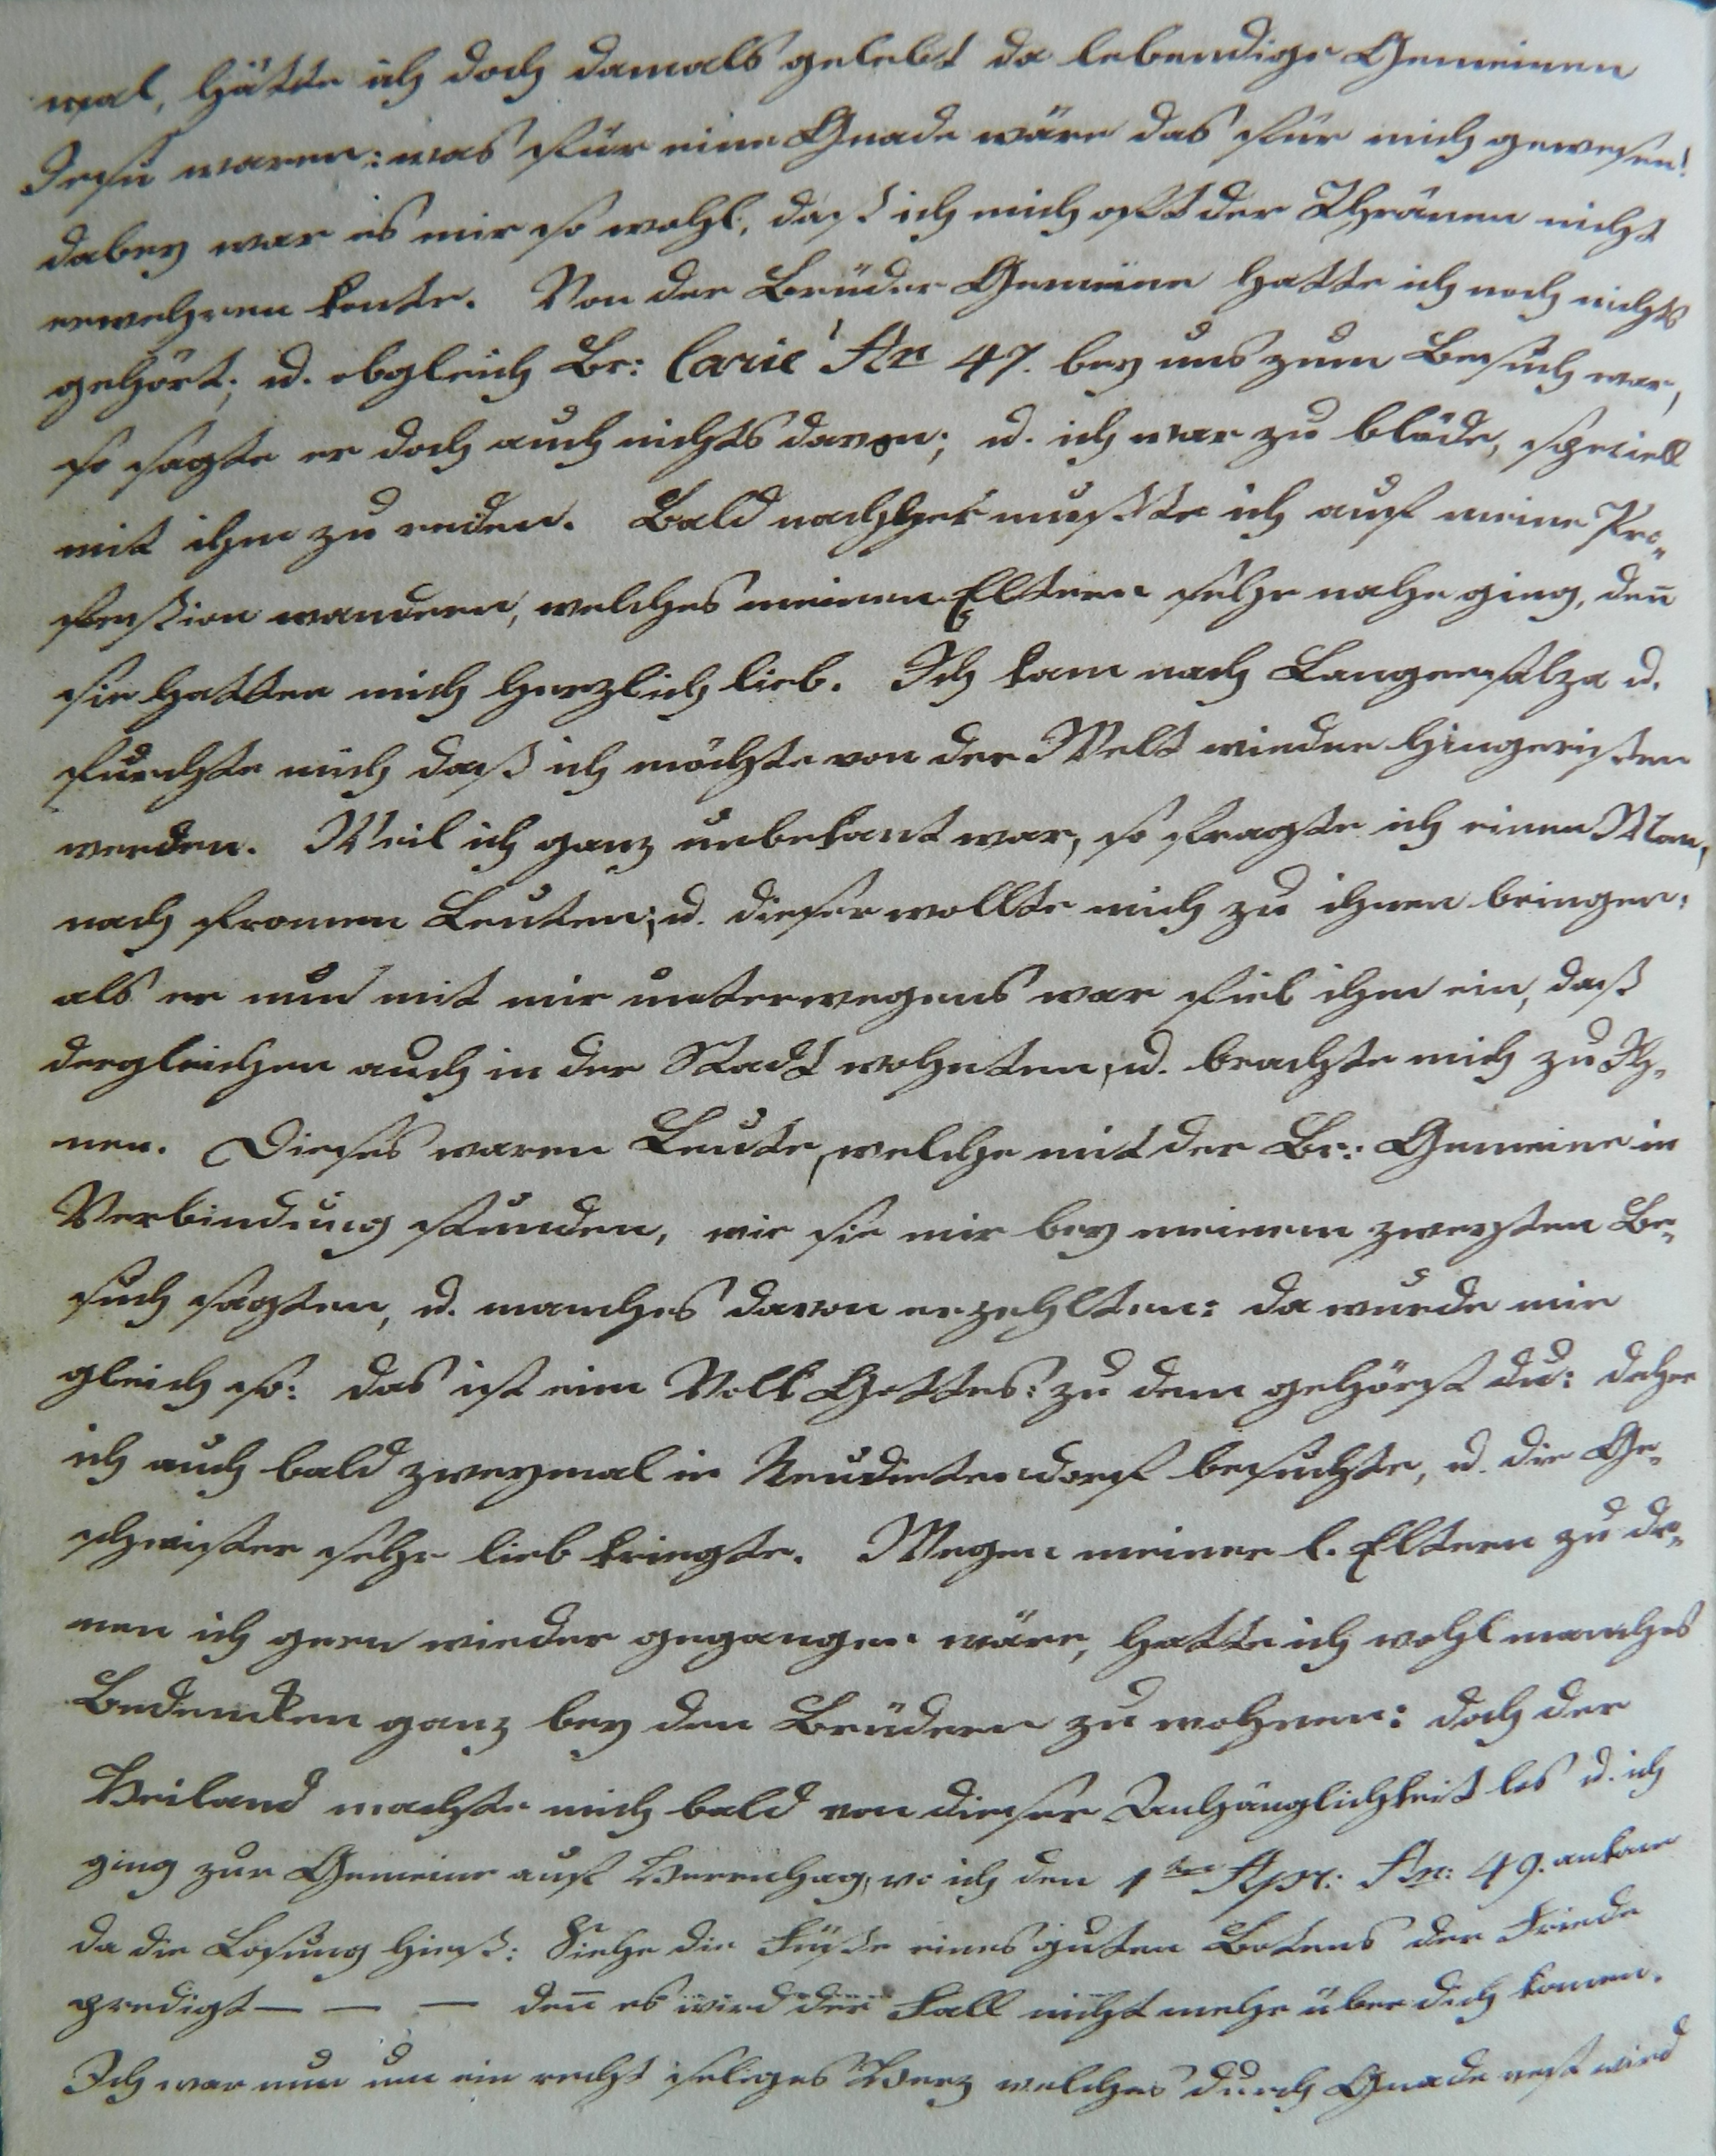 mal, hätte ich doch damals gelebt da lebendige Gemeinen
Jesu waren: was für eine Gnade wäre das für mich gewesen!
dabey war es mir so wohl, daß ich mich oft der Thränen nicht
erwehren konte. Von der Brüder Gemeine hatte ich noch nichts
gehört; u. obgleich Br: Carie An 47. bey uns zum Besuch war,
so sagte er doch auch nichts davon; u. ich war zu blöde, speciell
mit ihm zu reden. Bald nachher mußte ich auf meine Pro„
feßion wandern, welches meinen Eltern sehr nahe ging, den̄
sie hatten mich herzlich lieb. Ich kam nach Langensalza u.
furchte mich daß ich möchte von der Welt wieder hingerißen
werden. Weil ich ganz unbekant war, so fragte ich einen Man,
nach fromen Leuten; u. dieser wollte mich zu ihnen bringen:
als er nun mit mir unterwegens war fiel ihm ein, daß
dergleichen auch in der Stadt wohnten, u. brachte mich zu Ih„
nen. Dieses waren Leute, welche mit der Br: Gemeine in
Verbindung stunden, wie sie mir bey meinem zweyten Be„
such sagten, u. manches davon erzehlten: da wurde mir
gleich so: das ist ein Volk Gottes: zu dem gehörst du: daher
ich auch bald zweymal in Neudietendorf besuchte, u. die Ge„
schwister sehr lieb kriegte. Wegen meiner l. Eltern zu de„
nen ich gern wieder gegangen wäre, hatte ich wohl manches
Bedencken ganz bey den Brüdern zu wohnen: doch der
Heiland machte mich bald von dieser Anhänglichkeit los u. ich
ging zur Gemeine auf Herrnhag, wo ich den 1ten Apr: An: 49. ankam
da die Losung hieß: Siehe die Füße eines guten Botens der Friede
predigt — — — den̄ es wird der Fall nicht mehr über dich komen.
Ich war nun um ein recht seliges Herz welches durch Gnade vest wird